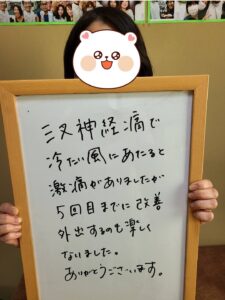 三叉神経痛で
冷たい風にあたると
激痛がありましたが
5回目までに改善
外出するのも楽しく
なりました。
ありがとうございます。